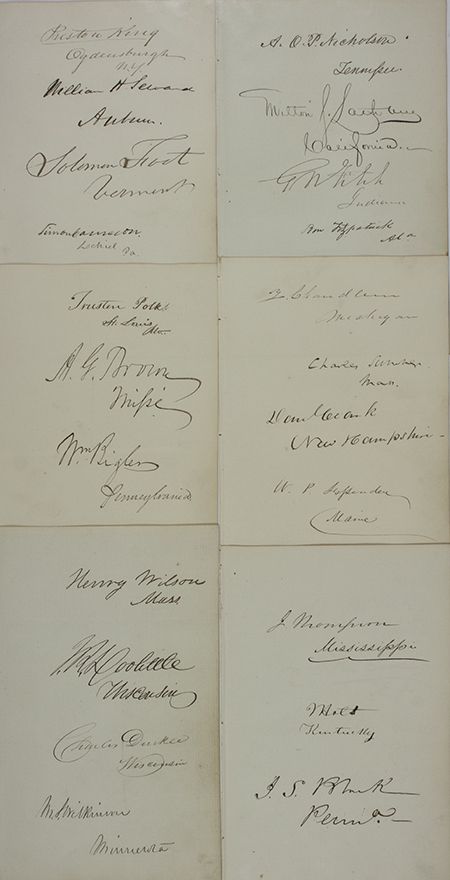 Preston King
Ogdensburgh
N.Y.
William H Seward
Auburn.
Solomon Foot
Vermont
Simon Cameron
Lochiel Pa.
A. O. P. Nicholson
Tennessee.
Milton S. Latham
California
G N Fitch
Indiana
Ben Fitzpatrick
Ala
Trusten Polk
St. Louis
Mo.
A. G. Brown
Missi
Wm Bigler
Pennsylvania
Z Chandler
Michigan
Charles Sumner
Mass.
Dan'l Clark
New Hampshire
W. P. Fessenden
Maine
Henry Wilson
Mass
J R Doolittle
Wisconsin
Charles Durkee
Wisconsin
M S Wilkinson
Minnesota
J Thompson
Mississippi
J Holt
Kentucky
J. S. Black
Penna.